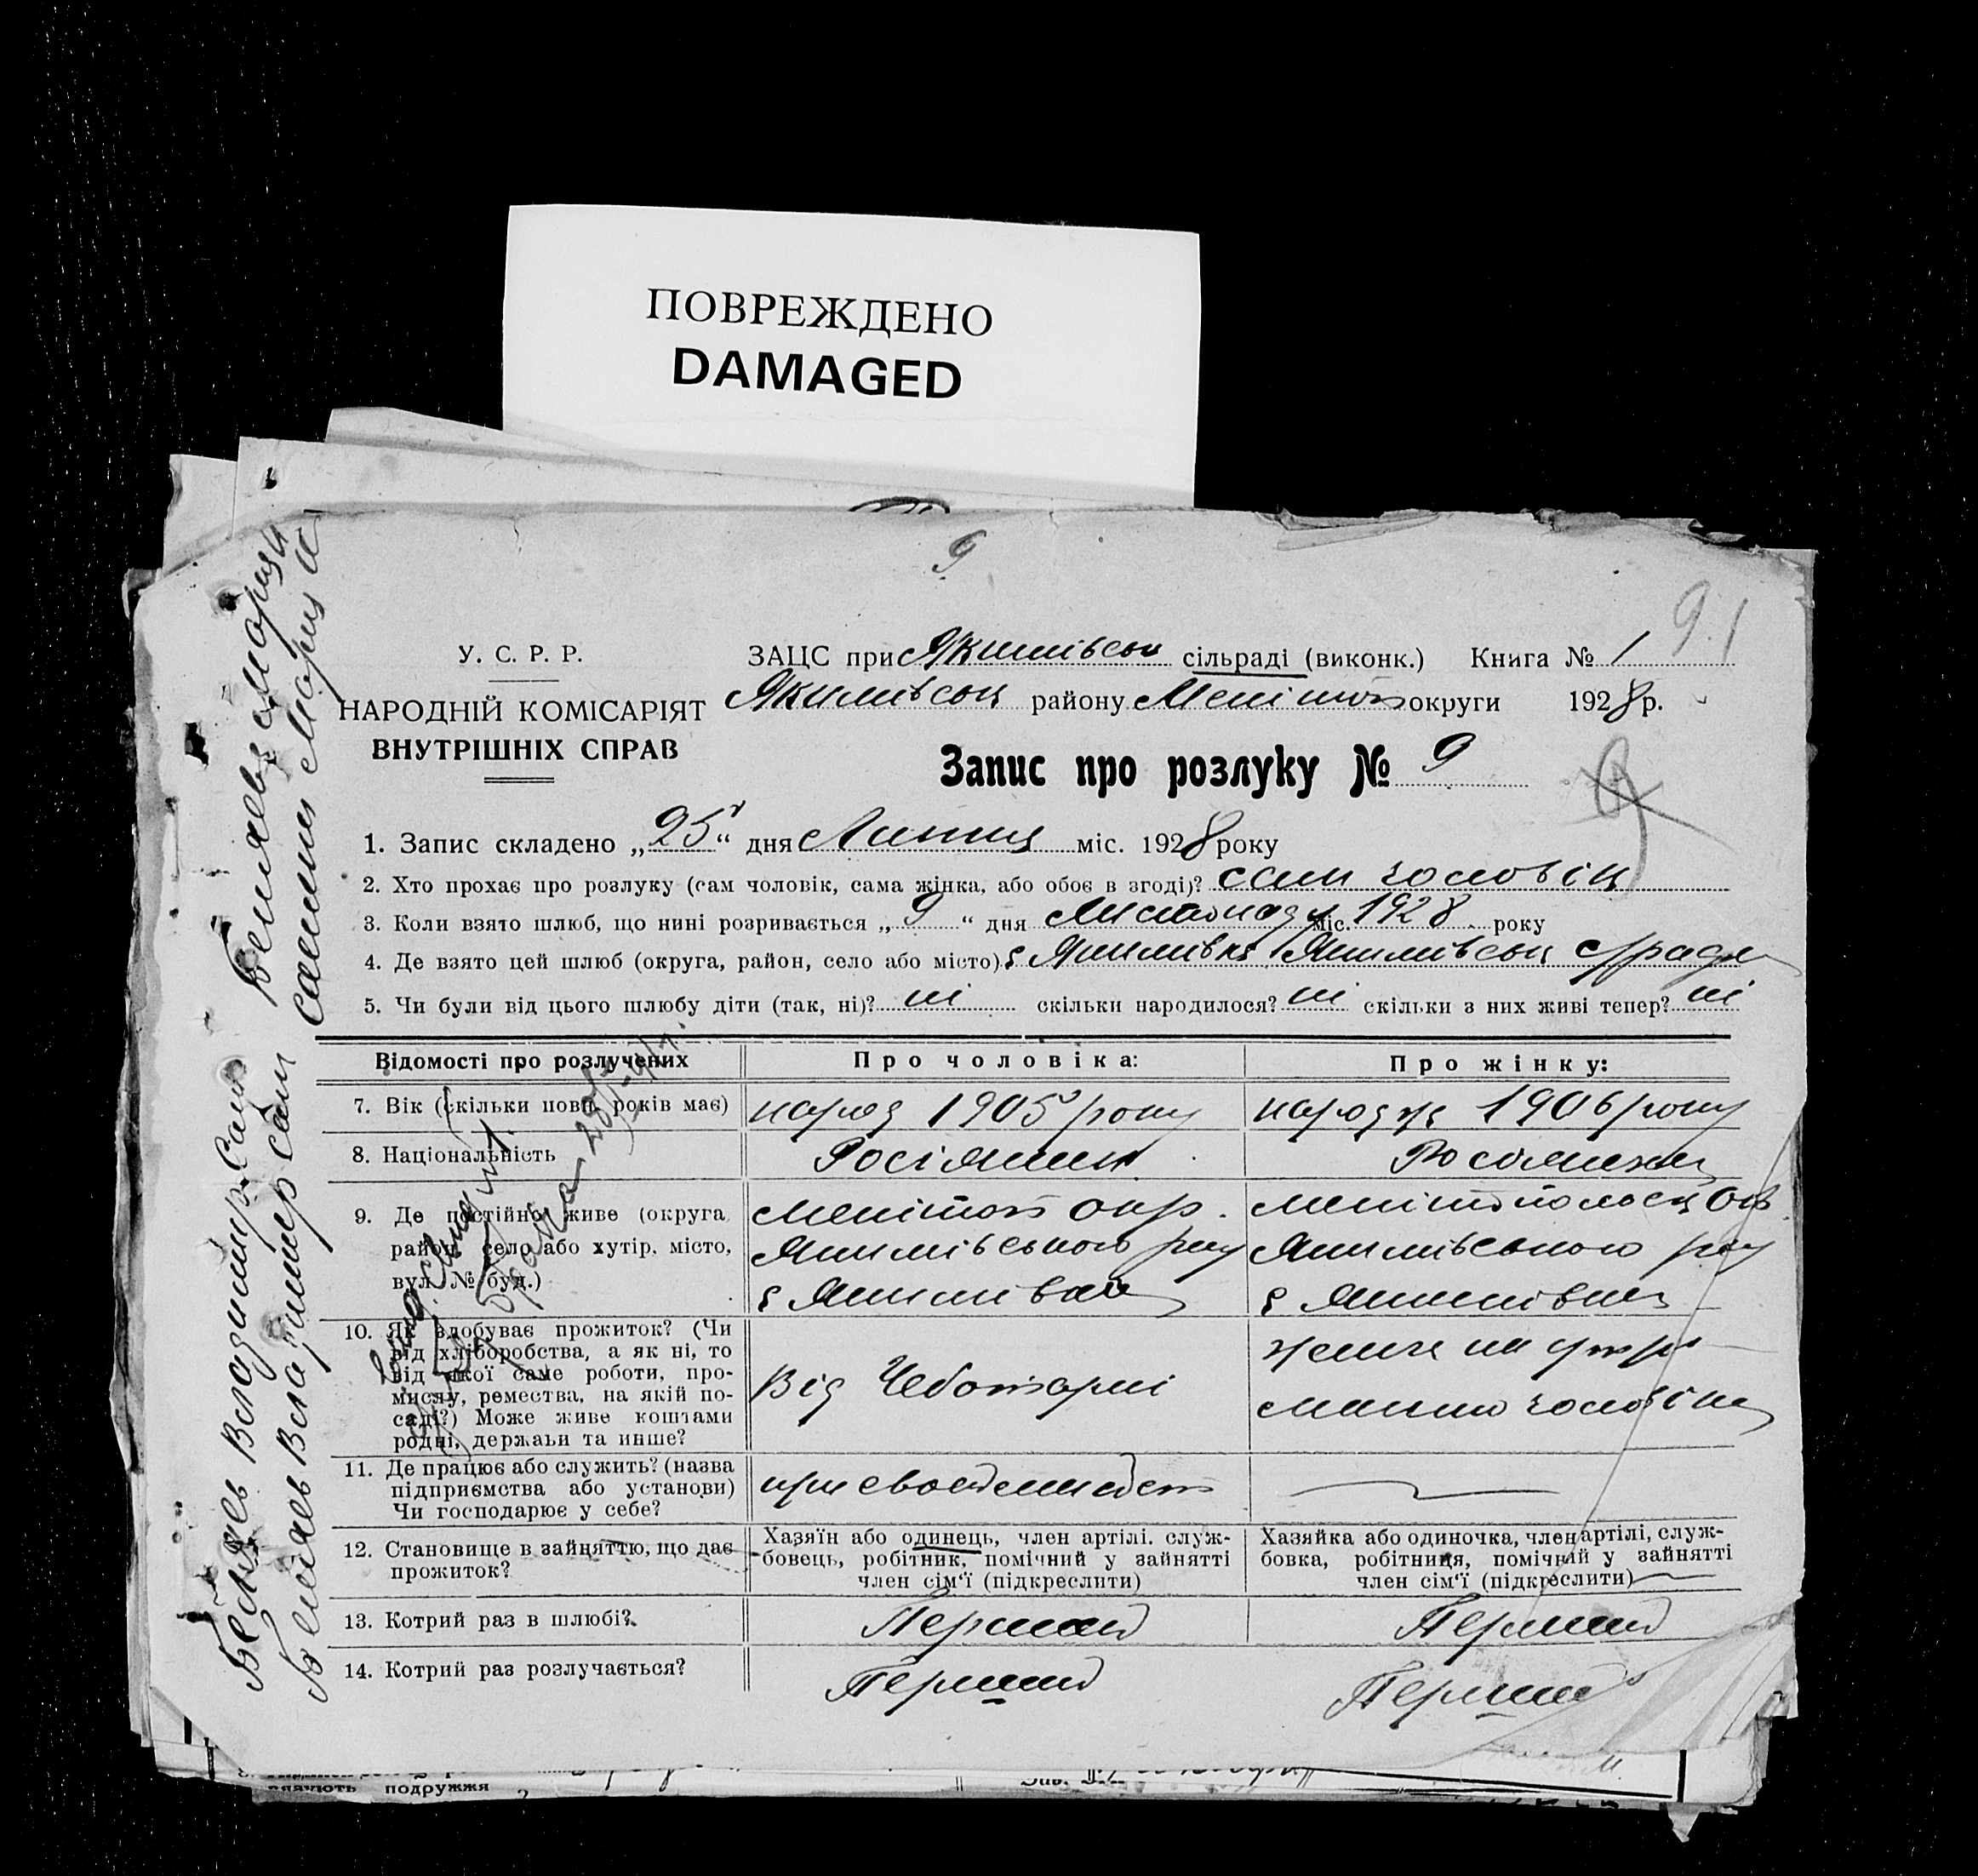 ПОВРЕЖДЕНО
DAMAGED
9
9.1
У. С. Р. Р.
НАРОДНІЙ КОМІСАРІЯТ
ВНУТРІШНІХ СПРАВ
ЗАЦС при Якимівськ сільраді (виконк.) Книга № 1
Якимівськ району Меліт округи 1928 р.
Запис про розлуку № 9
9
1. Запис складено „25“ дня міс. 1928 року
2. Хто прохає про розлуку (сам чоловік, сама жінка, або обоє в згоді)? сам чоловік
3. Коли взято шлюб, що нині розривається „9“ дня Листопаду міс. 1928 року
4. Де взято цей шлюб (округа, район, село або місто) с Якимівка Якимівськ с/рада
5. Чи були від цього шлюбу діти (так, ні)? ні скільки народилося? ні скільки з них живі тепер? ні
Відомості про розлучених
Про чоловіка:
Про жінку:
7. Вік (скільки повн. років має)
народ 1905 року
1906 року
8. Національність
Росіянин
9. Де постійно живе (округа
район, село або хутір, місто,
вул. № буд.)
Меліто окр.
Якимівського р-ну
с Якимівка
Мелітопольськ Ок
Якимівського р-ну
с Якимівка
10. Як здобуває прожиток? (Чи
від хліборобства, а як ні, то
від якої саме роботи, про-
мислу, ремества, на якій по-
саді?) Може живе коштами
родні, держави та инше?
Від Чеботарні
чоловіка
11. Де працює або служить? (назва
підприємства або установи)
Чи господарює у себе?
при
12. Становище в зайняттю, що дає
прожиток?
Хазяїн або одинець, член артілі, служ-
бовець, робітник, помічний у зайнятті
член сім'ї (підкреслити)
Хазяйка або одиночка, член артілі, служ-
бовка, робітниця, помічний у зайнятті
член сім'ї (підкреслити)
13. Котрий раз в шлюбі?
Перший
Перший
14. Котрий раз розлучається?
Перший
Перший
Беляєв Владимир Сам
Беляєва Мария
Беляєв Владимир Сам
Мария
подружжя